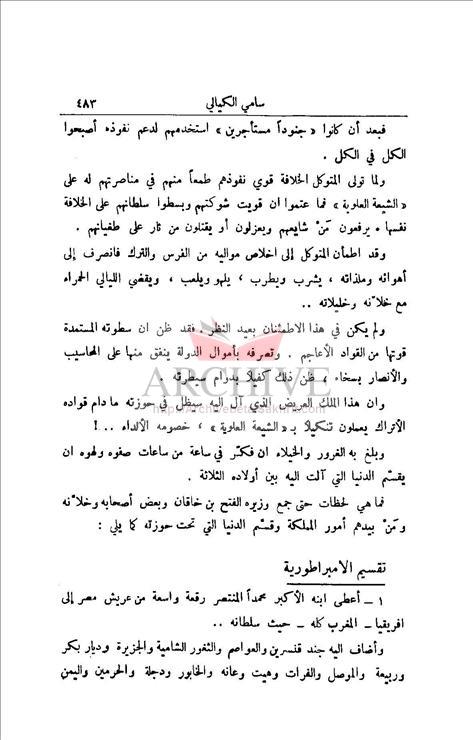 سامي الكيالي ٤٨٣
فبعد أن كانوا « جنوداً مستأجرين » استخدمهم لدعم نفوذه أصبحوا
الكل في الكل .
ولما تولى المتوكل الخلافة قوي نفوذهم طمعاً منهم في مناصرتهم له على
« الشيعة العلوية » فما عتموا ان قويت شوكتهم وبسطوا سلطانهم على الخلافة
نفسها ، يرفعون مَنْ شايعهم ويعزلون أو يقتلون من ثار على طغيانهم .
وقد اطمأن المتوكل إلى اخلاص مواليه من الفرس والترك فانصرف إلى
أهوائه وملذاته ، يشرب ويطرب ، يلهو ويلعب ، ويقضي الليالي الحمراء
مع خلانه وخليلاته ..
ولم يكن في هذا الاطمئنان بعيد النظر . فقد ظن ان سطوته المستمدة
قوتها من القواد الأعاجم . وتصرفه بأموال الدولة ينفق منها على المحاسيب
والأنصار بسخاء ، ظن ذلك كفيلا بدوام سيطرته .
ARCHIVE
وان هذا الملك العريض الذي آل اليه سيظل في حوزته ما دام قواده
الأتراك يعملون تنكيلا بـ « الشيعة العلوية » ، خصومه الألداء ..!
وبلغ به الغرور والخيلاء ان فكّر في ساعة من ساعات صفوه ولهوه ان
يقسّم الدنيا التي آلت اليه بين أولاده الثلاثة .
فما هي لحظات حتى جمع وزيره الفتح بن خاقان وبعض أصحابه وخلانه
ومَنْ بيدهم أمور المملكة وقسّم الدنيا التي تحت حوزته كما يلي :
تقسيم الامبراطورية
١ ــ أعطى ابنه الأكبر محمداً المنتصر رقعة واسعة من عريش مصر إلى
افريقيا ــ المغرب كله ــ حيث سلطانه ..
وأضاف اليه جند قنسرين والعواصم والثغور الشامية والجزيرة وديار بكر
وربيعة والموصل والفرات وهيت وعانه والخابور ودجلة والحرمين واليمن